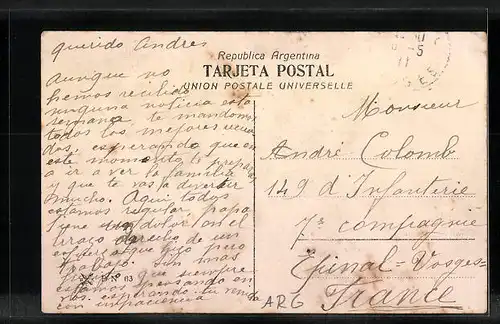 querido Andres
Aunque no
hemos recibido
ninguna noticia esta
semana, te mandamos
todos los mejores recuer
dos, esperando que en
este momento te preparas
a ir a ver la familia
y que te vas a divertir
mucho. Aqui todos
estamos regular, papa
tiene un dolor en el
brazo derecho de un
esfuerzo que hizo pero
trabaja. Sin mas
que siempre
estamos pensando en
vos. esperando tu
con impaciencia
Republica Argentina
TARJETA POSTAL
UNION POSTALE UNIVERSELLE
Monsieur
André Colomb
149 d'Infanterie
7e compagnie
Epinal = Vosges =
France
ARG